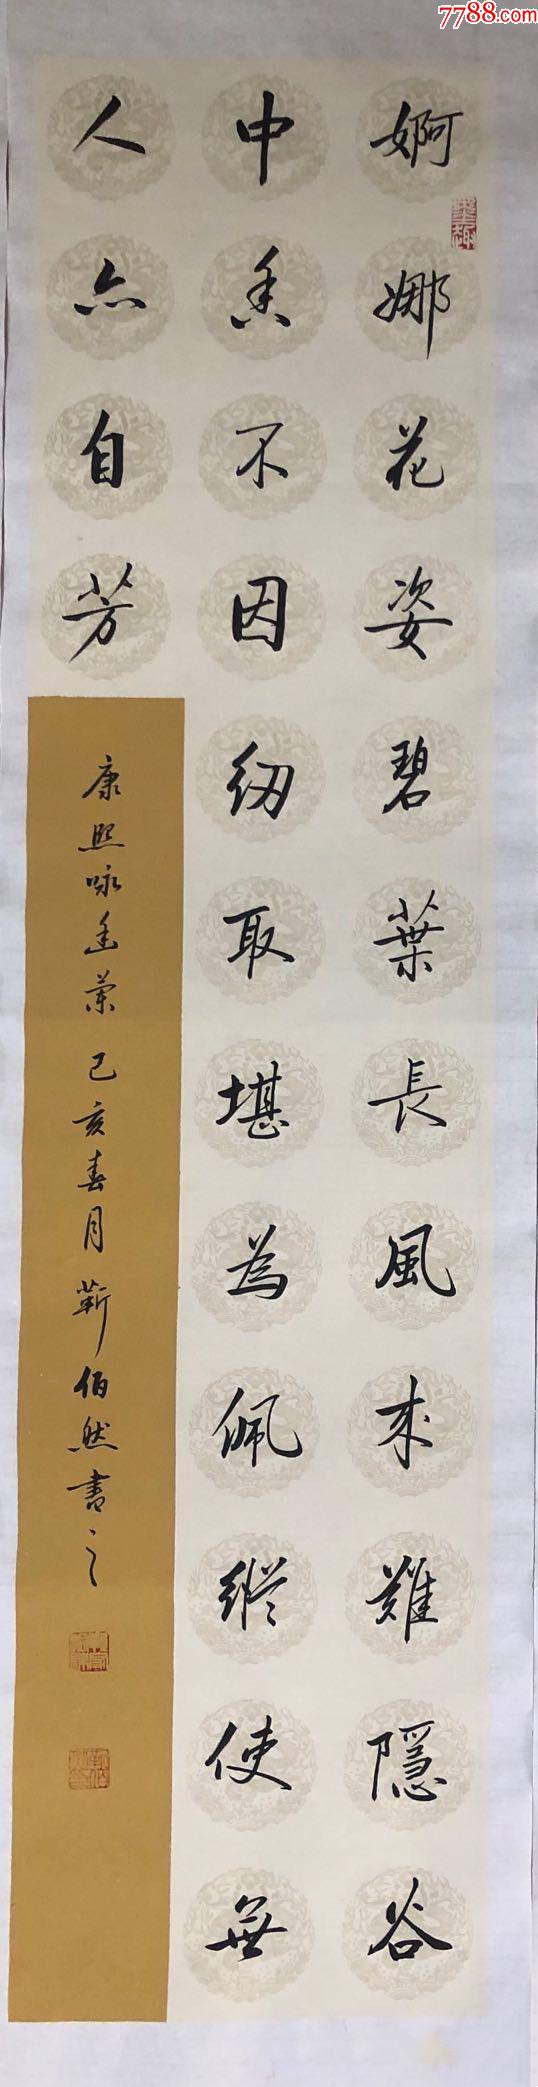 7788.com
婀娜花姿碧葉長風来難隱谷
中香不因纫取堪為佩縱使無
人亦自芳
康熙咏幽蘭 己亥春月 靳伯然書之